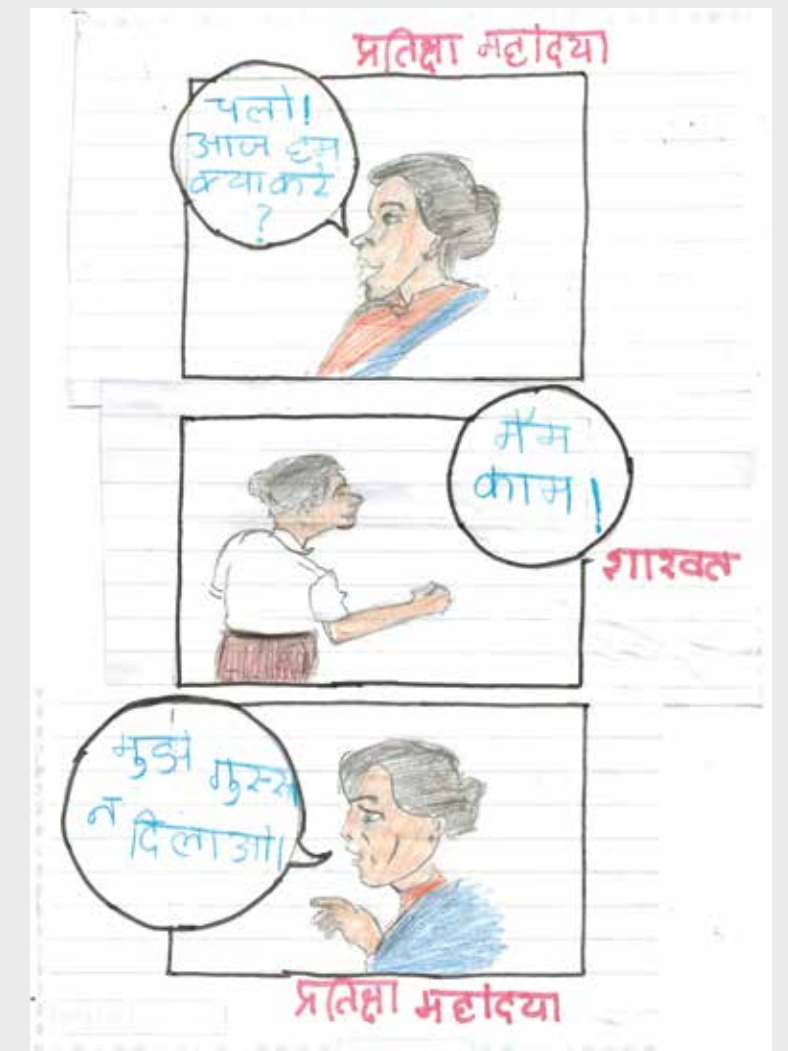 प्रतिक्षा महोदया
चलो!
आज हम
क्या करे
?
मैम
काम!
शाश्वत
मुझे गुस्सा
न दिलाओ।
प्रतिक्षा महोदया